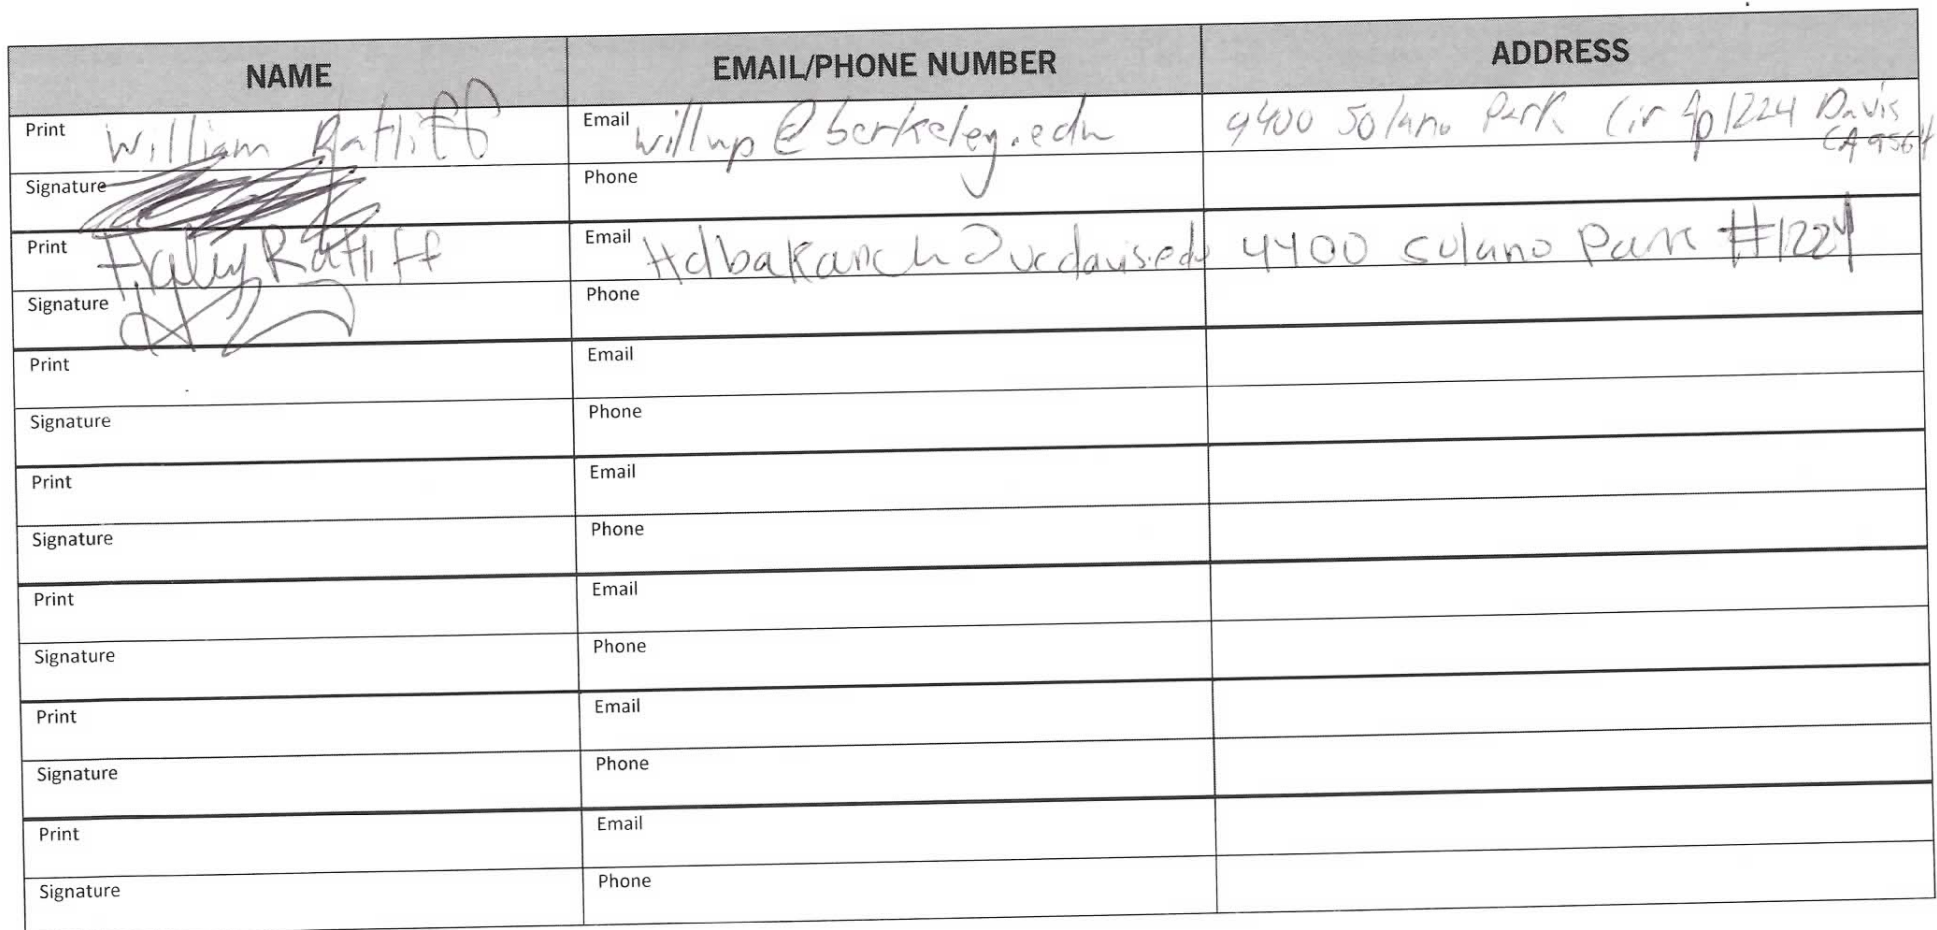 NAME EMAIL/PHONE NUMBER ADDRESS
Print William Ratliff Email willup@berkeley.edu 4400 Solano Park Cir Ap 1224 Davis
CA 9564
Signature Phone
Print Haley Ratliff Email Hdbakanch@ucdavis.edu 4400 Solano Park #1224
Signature Phone
Print Email
Signature Phone
Print Email
Signature Phone
Print Email
Signature Phone
Print Email
Signature Phone
Print Email
Signature Phone